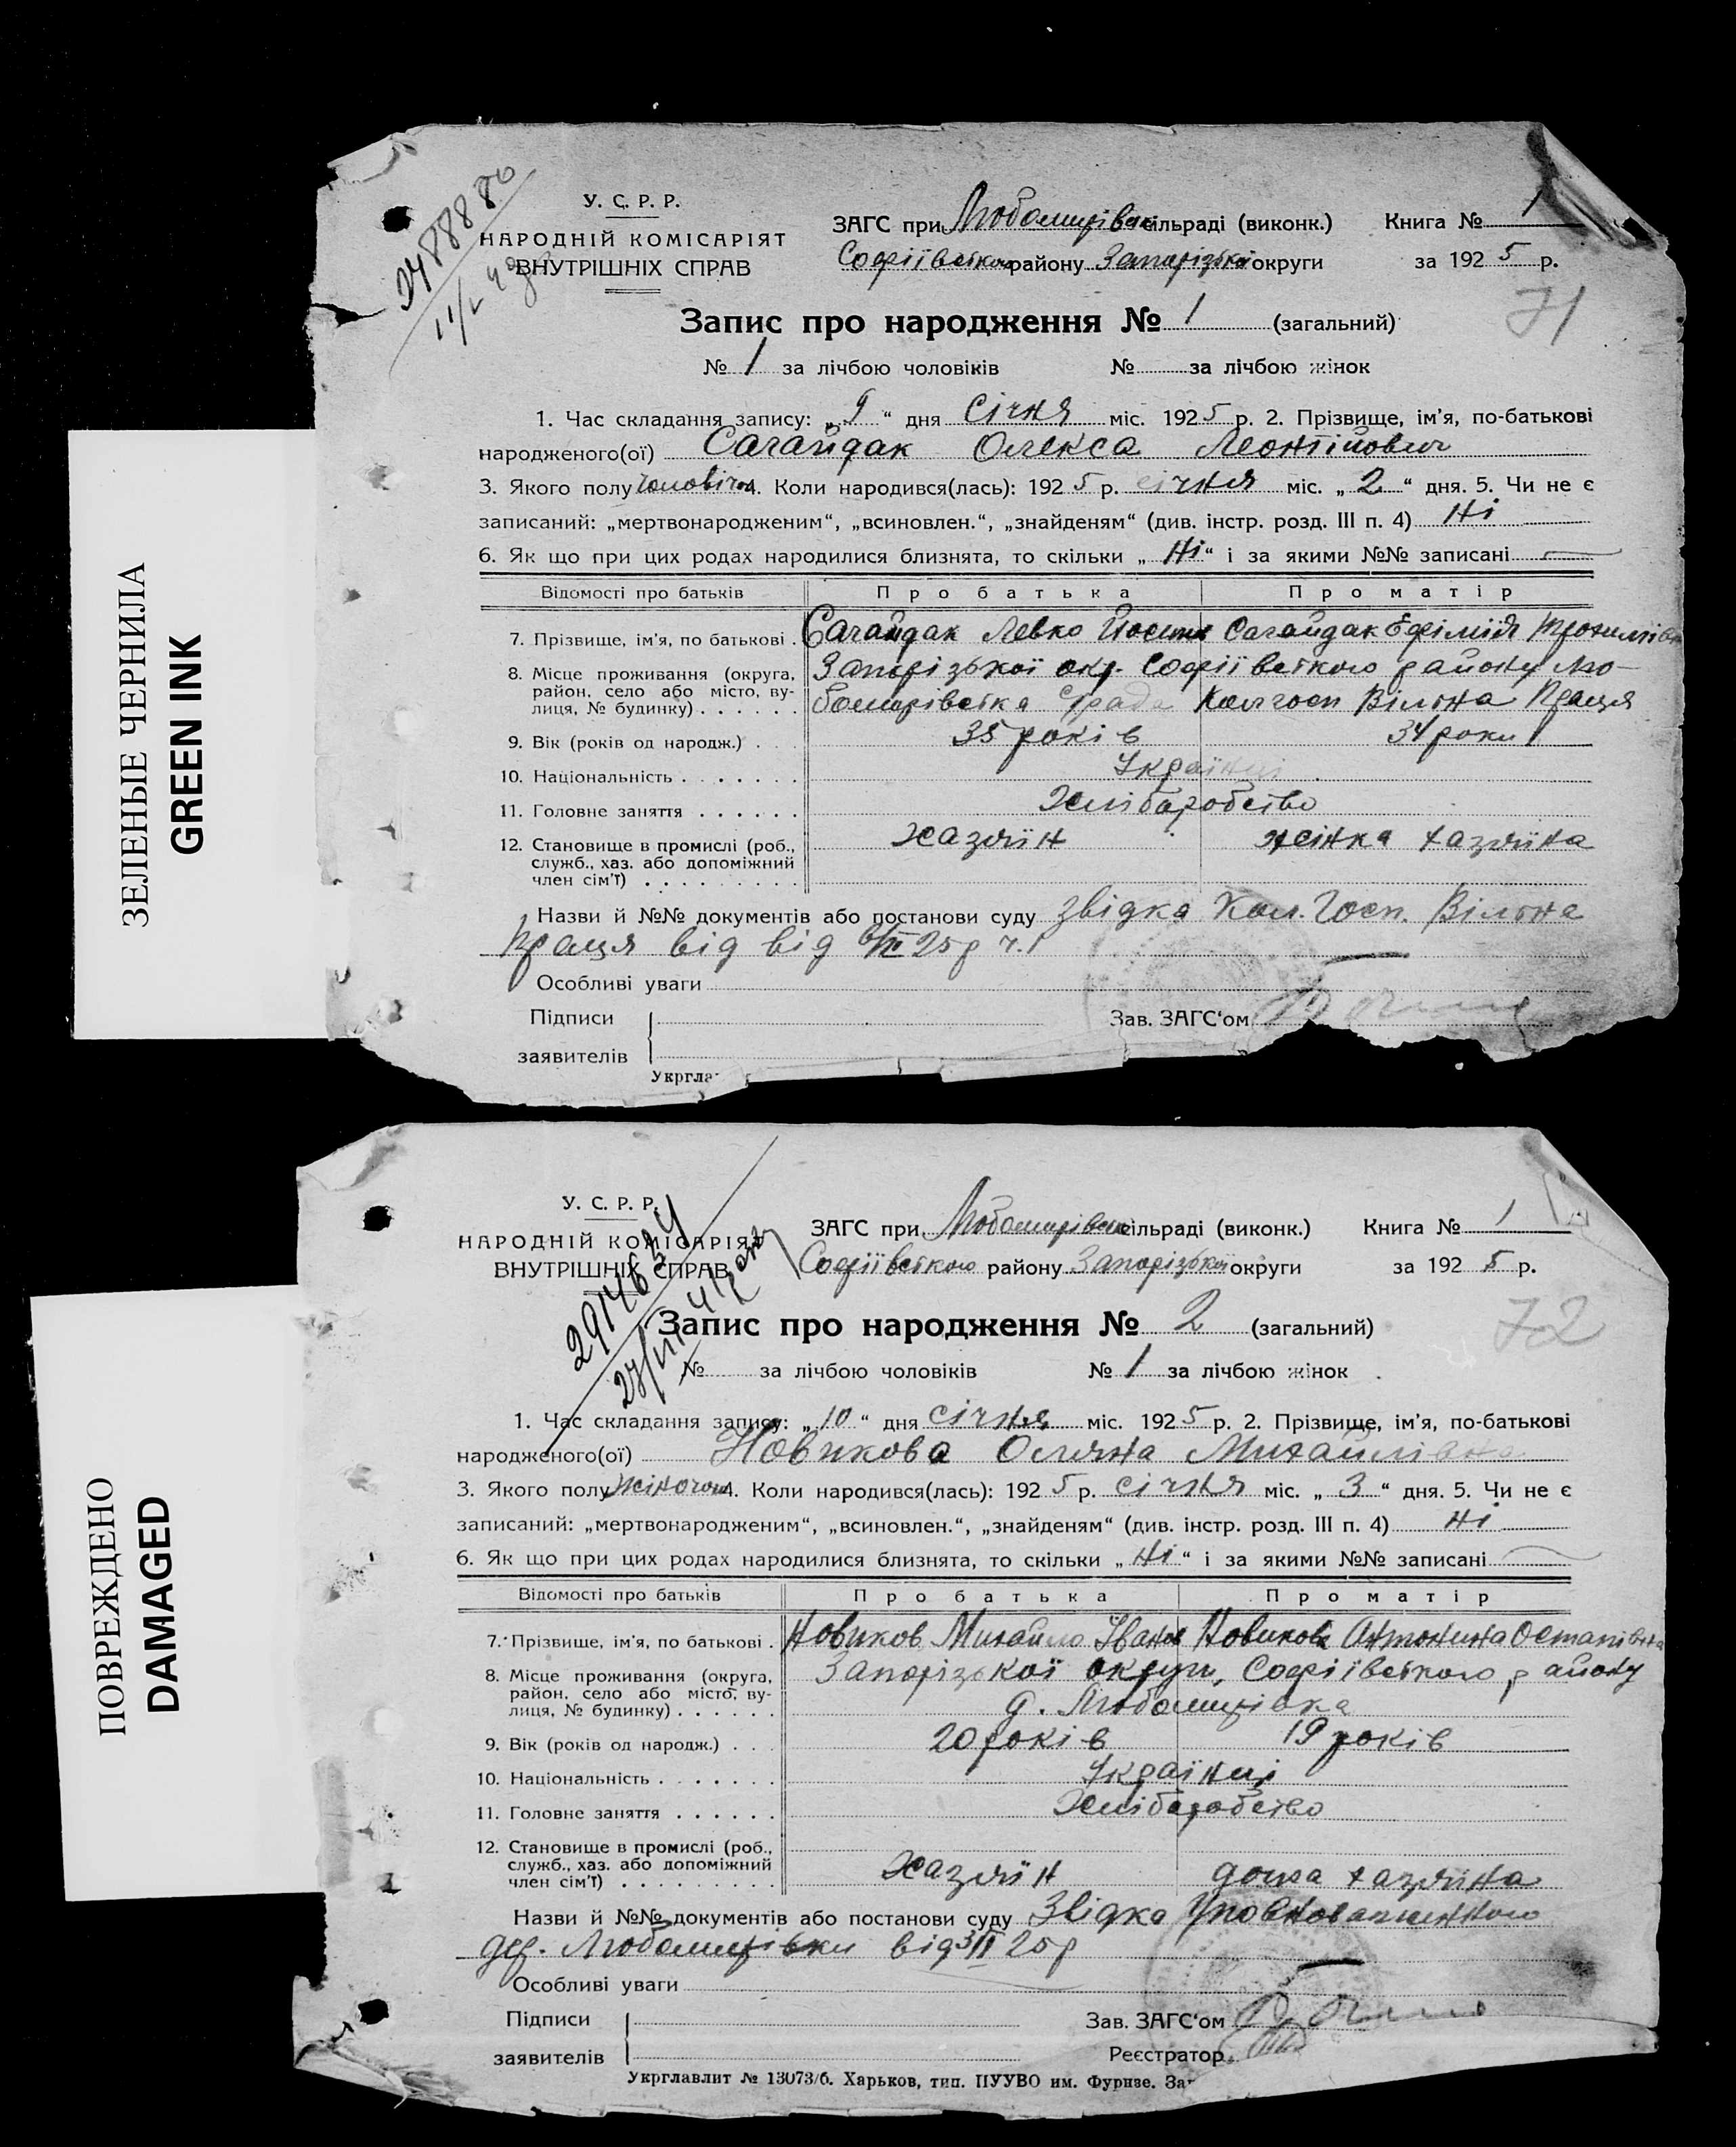 ЗЕЛЕНЫЕ ЧЕРНИЛА
GREEN INK
2488880
У. С. Р. Р.
НАРОДНІЙ КОМІСАРІЯТ
ВНУТРІШНІХ СПРАВ
ЗАГС при Любомирівск сільраді (виконк.) Книга № 1
Софіївського району Запорізької округи за 1925 р.
71
Запис про народження № 1 (загальний)
№ 1 за лічбою чоловіків № за лічбою жінок
1. Час складання запису: „9“ дня січня міс. 1925 р. 2. Прізвище, ім’я, по-батькові
народженого(ої) Сагайдак Олекса Леонтійович
3. Якого полу чоловічої 4. Коли народився(лась): 1925 р. січня міс. „2“ дня. 5. Чи не є
записаний: „мертвонародженим“, „всиновлен.“, „знайденям“ (див. інстр. розд. III п. 4) Ні
6. Як що при цих родах народилися близнята, то скільки „Ні“ і за якими №№ записані —
Відомості про батьків Про батька Про матір
7. Прізвище, ім’я, по батькові . Сагайдак Левко Йосипов Сагайдак Ефімія Трохимівна
8. Місце проживання (округа, район, село або місто, вулиця, № будинку) . . . . . . Запорізької окр. Софіївського району Лю-
бомирівська Срада Колгосп Вільна Праця
9. Вік (років од народж.) . . . 35 років 34 роки
10. Національність . . . . . . . Українці
11. Головне заняття . . . . . . Хліборобство
12. Становище в промислі (роб., служб., хаз. або допоміжний член сім’ї) . . . . . . . . . хазяїн жінка хазяїна
Назви й №№ документів або постанови суду Звідка Кол. Госп. Вільна
Праця від від 25 р ч. 1
Особливі уваги
Підписи
заявителів
Зав. ЗАГС‘ом
Укргла
ПОВРЕЖДЕНО
DAMAGED
У. С. Р. Р.
НАРОДНІЙ КОМІСАРІЯТ
ВНУТРІШНІХ СПРАВ
ЗАГС при Любомирівск сільраді (виконк.) Книга № 1
Софіївського району Запорізької округи за 1925 р.
72
Запис про народження № 2 (загальний)
№ за лічбою чоловіків № 1 за лічбою жінок
1. Час складання запису: „10“ дня січня міс. 1925 р. 2. Прізвище, ім’я, по-батькові
народженого(ої) Новикова Оляна Михайлівна
3. Якого полу жіночої 4. Коли народився(лась): 1925 р. січня міс. „3“ дня. 5. Чи не є
записаний: „мертвонародженим“, „всиновлен.“, „знайденям“ (див. інстр. розд. III п. 4) Ні
6. Як що при цих родах народилися близнята, то скільки „Ні“ і за якими №№ записані —
Відомості про батьків Про батька Про матір
7. Прізвище, ім’я, по батькові . Новиков Михайло Іванов Новикова Антонина Остапівна
8. Місце проживання (округа, район, село або місто, вулиця, № будинку) . . . . . . Запорізької округи, Софіївського району
д. Любомирівка
9. Вік (років од народж.) . . . 20 років 19 років
10. Національність . . . . . . . Українці
11. Головне заняття . . . . . . Хліборобство
12. Становище в промислі (роб., служб., хаз. або допоміжний член сім’ї) . . . . . . . . . Хазяїн хазяїна
Назви й №№ документів або постанови суду Звідка Уповноваженного
дер. Любомирівки від 25 р
Особливі уваги
Підписи
заявителів
Зав. ЗАГС‘ом
Реєстратор
Укрглавлит № 13073/6. Харьков, тип. ПУУВО им. Фрунзе. За